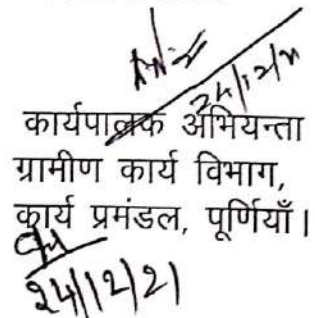 24/12/21
कार्यपालक अभियन्ता
ग्रामीण कार्य विभाग,
कार्य प्रमंडल, पूर्णियाँ।
24/12/21